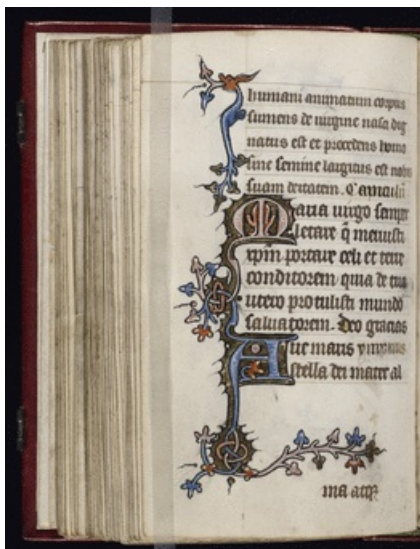 humani animatum corpus
sumens de uirgine nasci dig
natus est et procedens homo
sine semine largitus est nobis
suam deitatem. Capitulū
Maria uirgo semper
letare q̄ meruisti
xp̄m portare celi et terre
conditorem quia de tuo
utero protulisti mundo
saluatorem. Deo gracias
Aue maris ympnus
stella dei mater al
ma atq̄